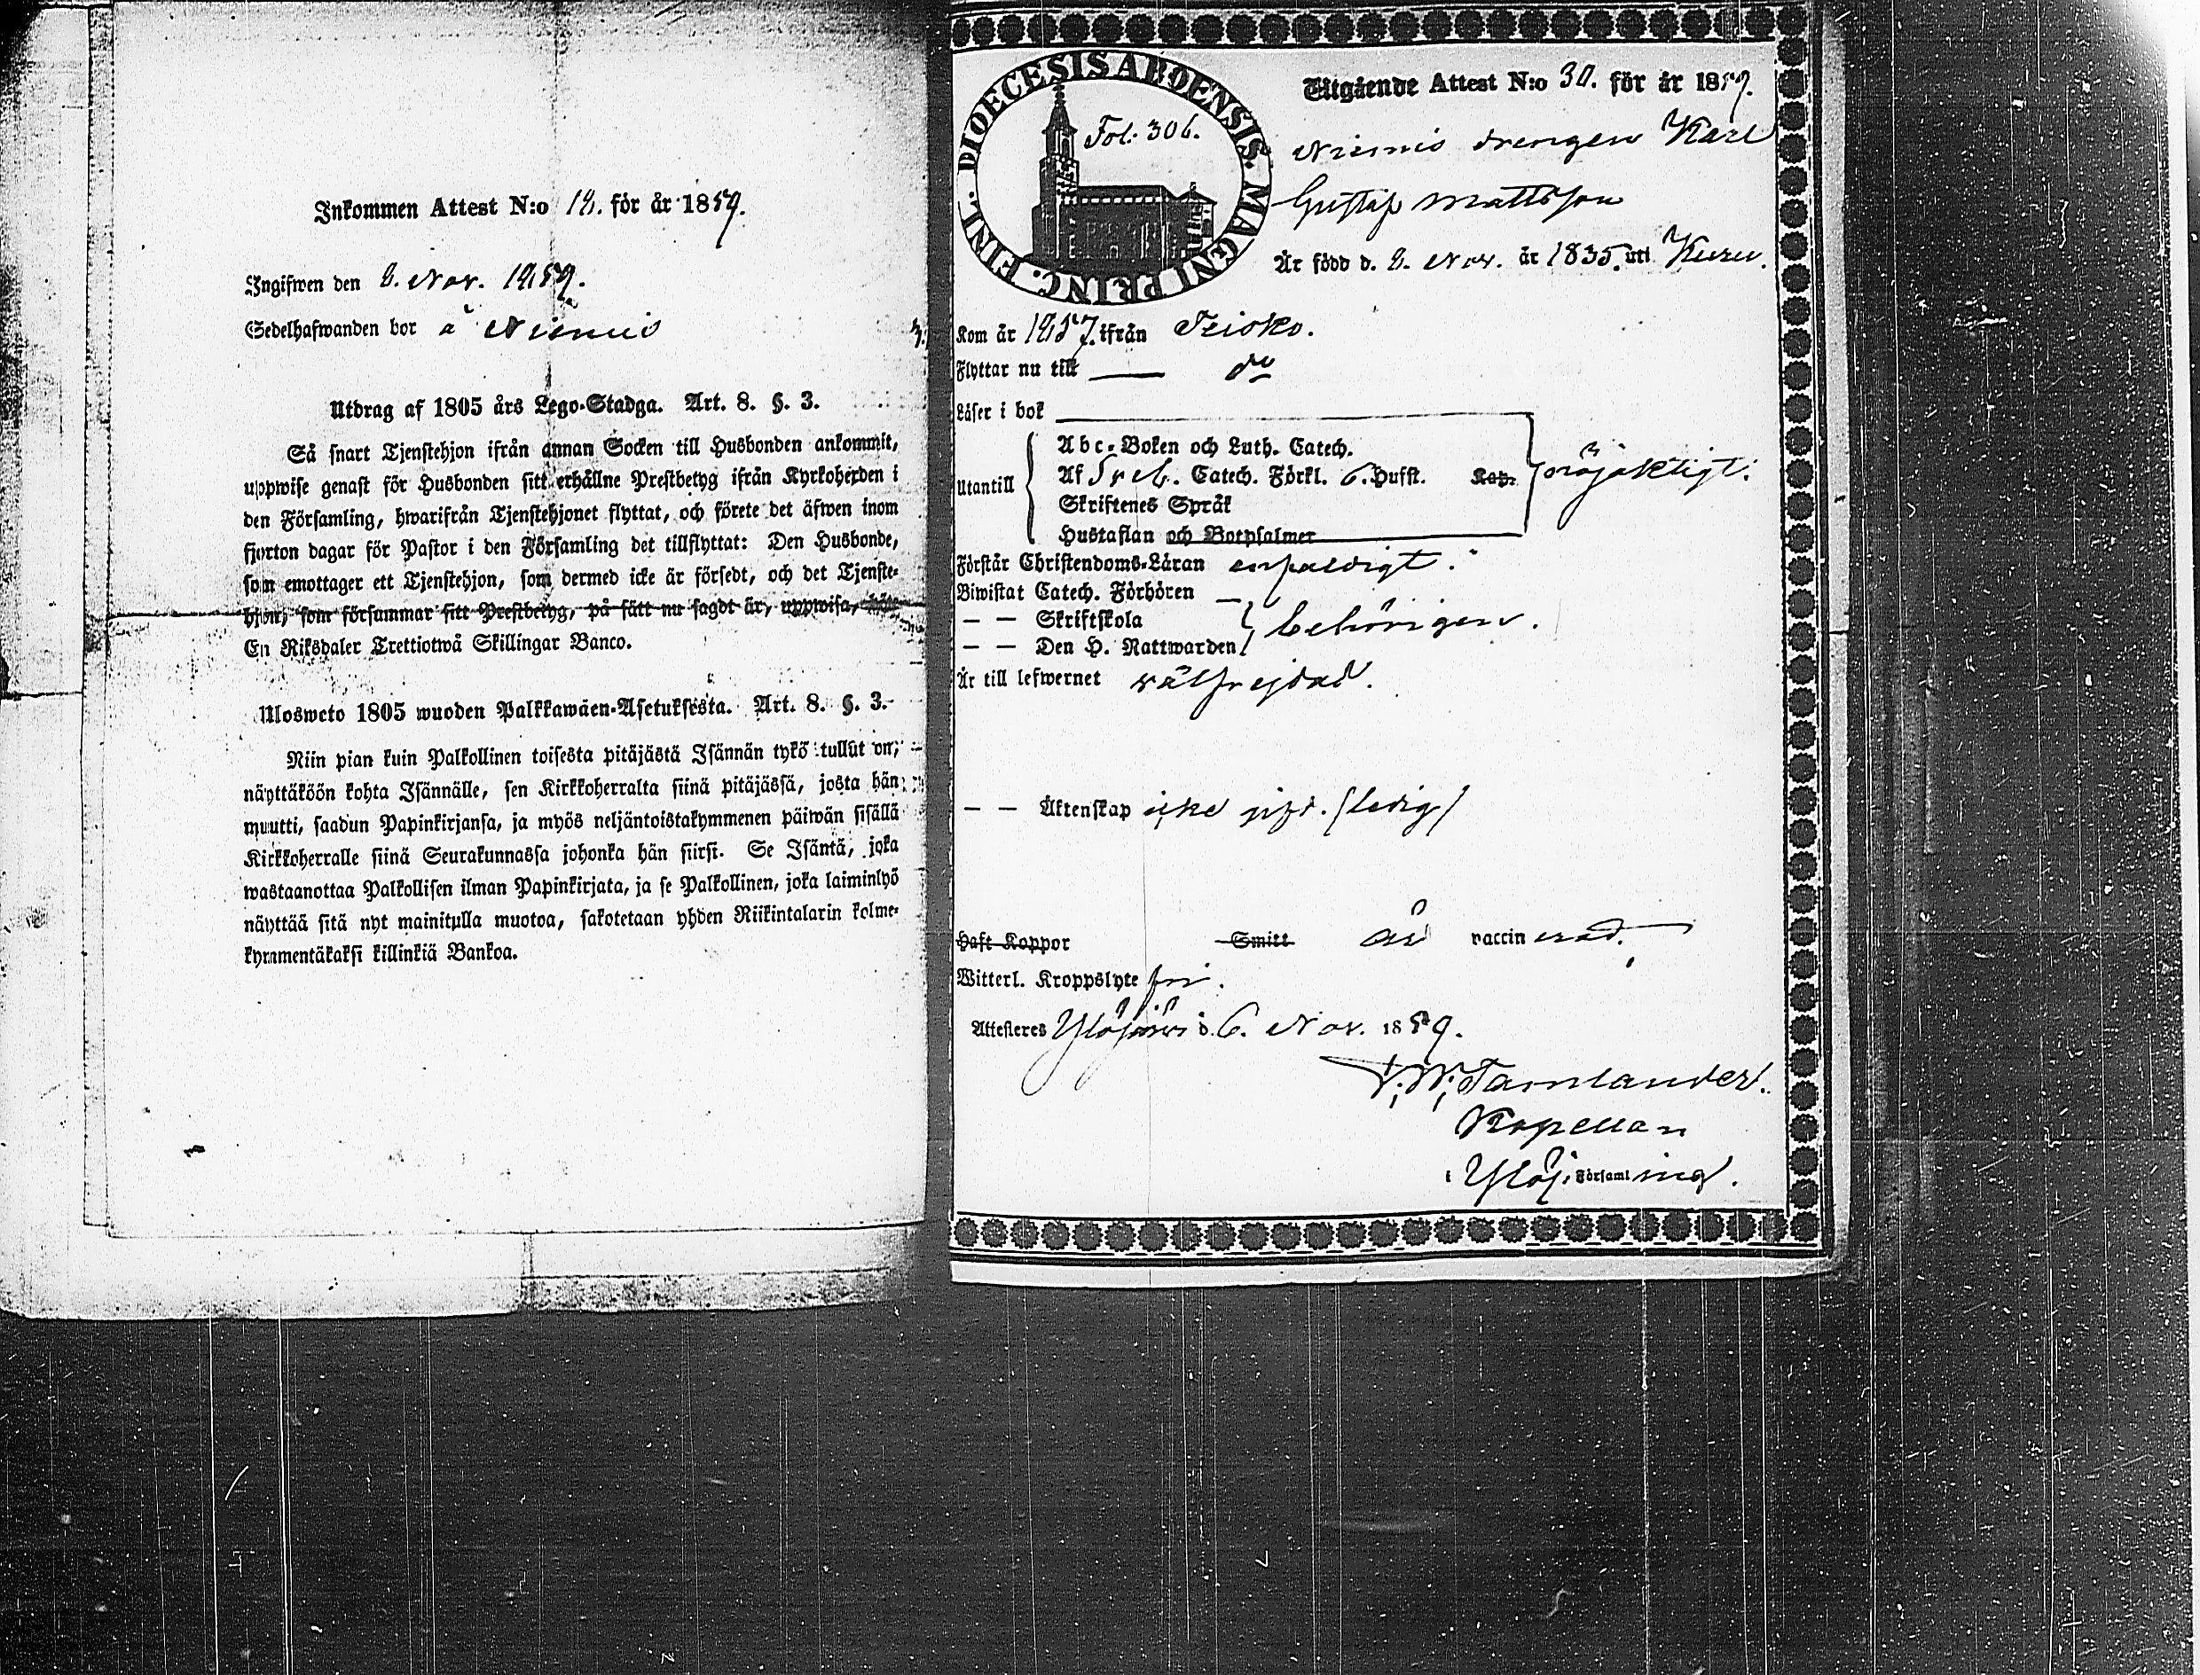 Inkommen Attest N:o 18. för år 1859.
Ingifwen den 8. Nov. 1859.
Sedelhafwanden bor å Niemis
Utdrag af 1805 års Lego-Stadga. Art. 8. §. 3.
Så snart Tjenstehjon ifrån annan Socken till Husbonden ankommit,
uppwise genast för Husbonden sitt erhållne Prestbetyg ifrån Kyrkoherden i
den Församling, hwarifrån Tjenstehjonet flyttat, och förete det äfwen inom
fjorton dagar för Pastor i den Församling det tillflyttat: Den Husbonde,
som emottager ett Tjenstehjon, som dermed icke är försedt, och det Tjenste-
hjon, som försummar sitt Prestbetyg, på sätt nu sagdt är, uppwisa, böte
En Riksdaler Trettiotwå Skillingar Banco.
Ulosweto 1805 wuoden Palkkawäen-Asetuksesta. Art. 8. §. 3.
Niin pian kuin Palkollinen toisesta pitäjästä Isännän tykö tullut on,
näyttäköön kohta Isännälle, sen Kirkkoherralta siinä pitäjässä, josta hän
muutti, saadun Papinkirjansa, ja myös neljäntoistakymmenen päiwän sisällä
Kirkkoherralle siinä Seurakunnassa johonka hän siirsi. Se Isäntä, joka
wastaanottaa Palkollisen ilman Papinkirjata, ja se Palkollinen, joka laiminlyö
näyttää sitä nyt mainitulla muotoa, sakotetaan yhden Riikintalarin kolme-
kymmentäkaksi killinkiä Bankoa.
FINL. DIOECESIS ABOENSIS. MAGNI PRINC.
Fol: 306.
Utgående Attest N:o 30. för år 1859.
Niemis drengen Karl
Gustaf Mattsson
Är född d. 8. Nov. år 1835. uti Kuru.
Kom år 1857. ifrån Teisko.
Flyttar nu till do
Läser i bok
Utantill
Abc-Boken och Luth. Catech.
Af Sveb. Catech. Förkl. 6. Hufst. Kap.
Skriftenes Språk
Hustaflan och Botpsalmer
Förstår Christendoms-Läran enfaldigt.
Biwistat Catech. Förhören
— — Skriftskola
— — Den H. Nattwarden behörigen.
Är till lefwernet wälfrejdad.
— — Äktenskap icke gift. (ledig)
Haft Koppor Smitt är vaccinerad.
Witterl. Kroppslyte fri.
Attesteres Ylöjärvi d. 6. Nov. 1859.
Tamlander.
Kapellan
i Ylöj. Församling.